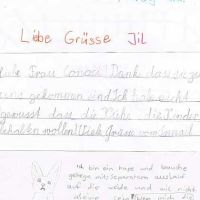 Liebe Grüsse Jil
Liebe Frau Dank dass sie zu
uns gekommen sind Ich habe nicht
gewusst dass die Kühe die Kinder
behalten wollen Liebe Grüsse von
Ich bin ein hase und brauche
gehege mit separatem auslauf
auf die weide und wil nicht
alleine sein